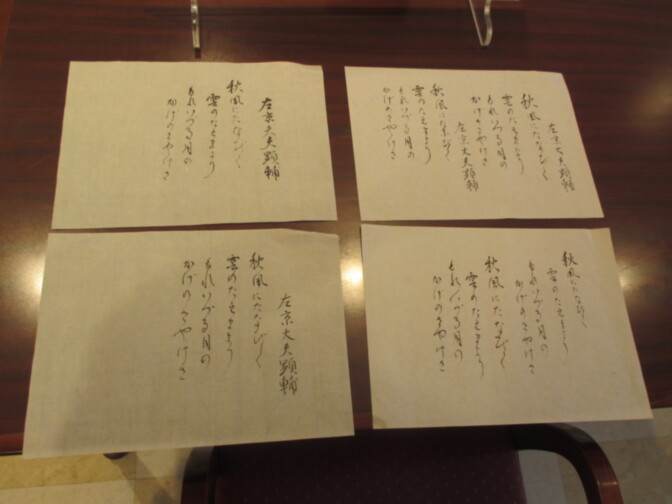 左京大夫顕輔
秋風にたなびく
雲のたえまより
もれいづる月の
かげのさやけさ
左京大夫顕輔
秋風にたなびく
雲のたえまより
もれいづる月の
かげのさやけさ
左京大夫顕輔
秋風にたなびく
雲のたえまより
もれいづる月の
かげのさやけさ
左京大夫顕輔
秋風にたなびく
雲のたえまより
もれいづる月の
かげのさやけさ
秋風にたなびく
雲のたえまより
もれいづる月の
かげのさやけさ
秋風にたなびく
雲のたえまより
もれいづる月の
かげのさやけさ